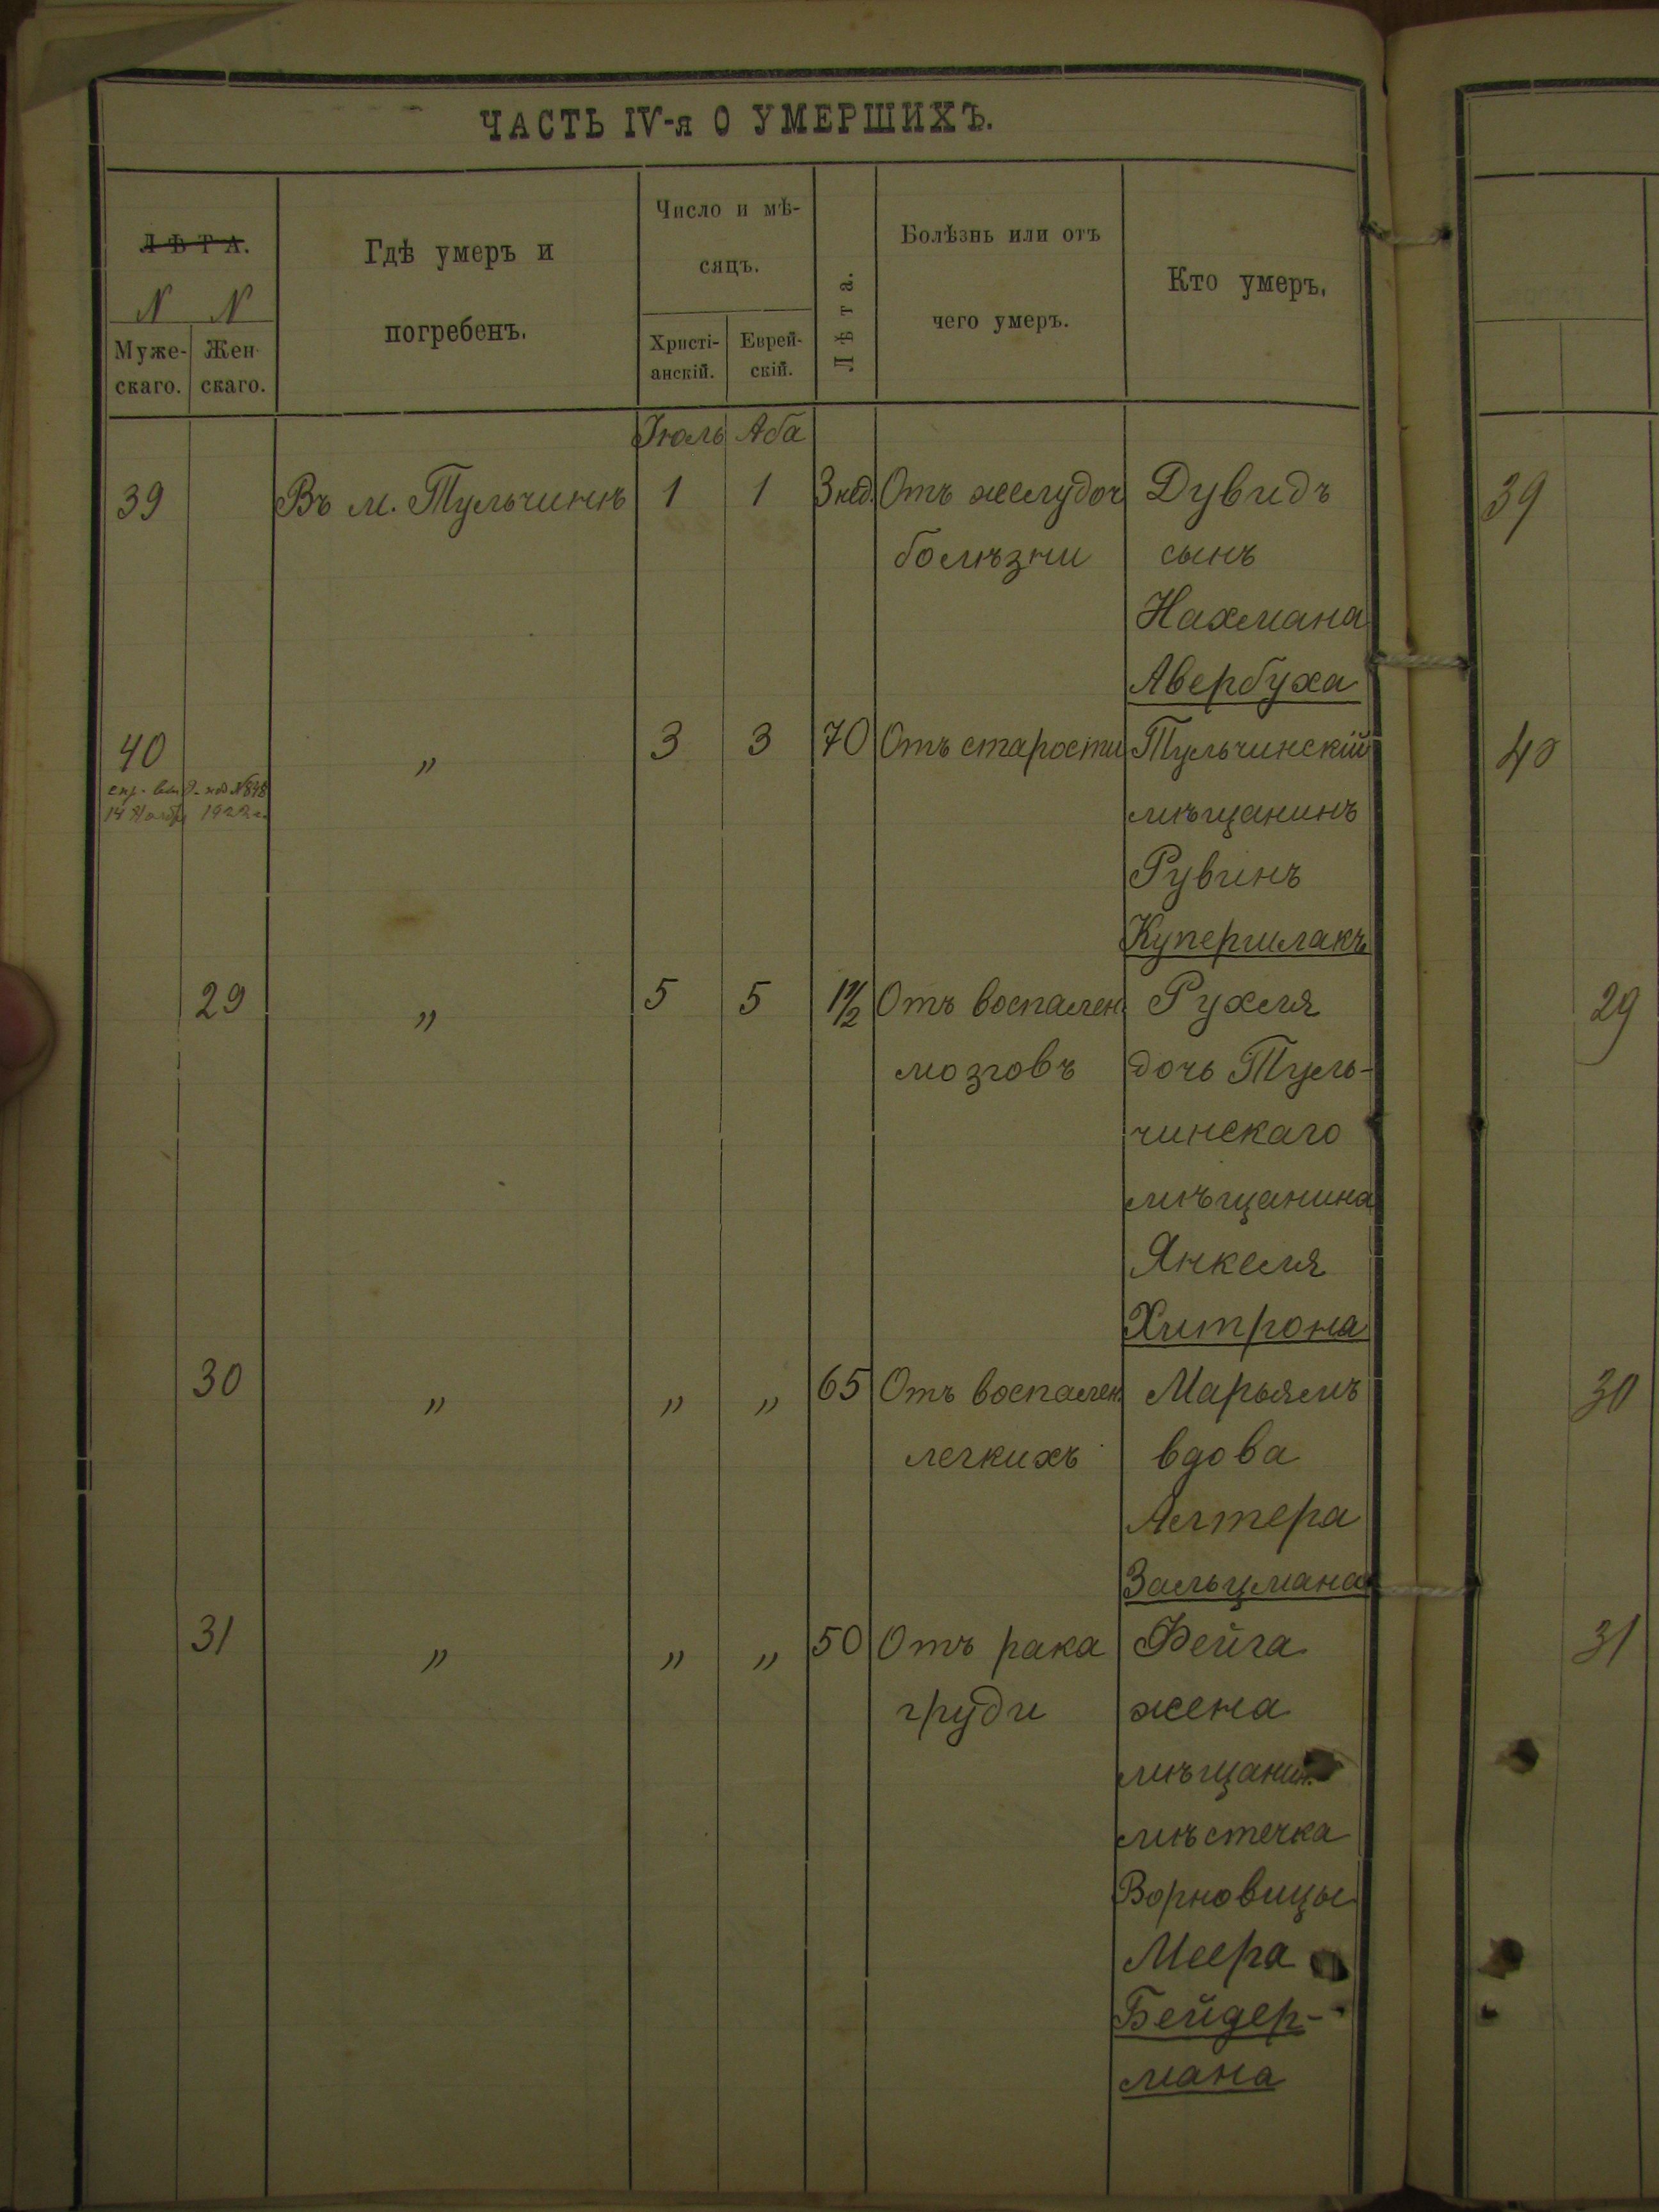 ЧАСТЬ IV-я О УМЕРШИХЪ.
ЛѢТА.
N N
Муже-скаго.
Жен-скаго.
Гдѣ умеръ и
погребенъ.
Число и мѣ-
сяцъ.
Христі-анскій.
Еврей-скій.
Лѣта.
Болѣзнь или отъ
чего умеръ.
Кто умеръ.
Іюль Аба
39 Въ м. Тульчинѣ 1 1 3 нед. Отъ желудоч Дувидъ 39
болѣзни сынъ
Нахмана
Авербуха
40 „ 3 3 70 Отъ старости Тульчинскій 40
№ 898
14 1922 г.
мѣщанинъ
Рувинъ
Купершлакъ
29 „ 5 5 1 1/2 Отъ воспален. Рухля 29
мозговъ дочь Туль-
чинскаго
мѣщанина
Янкеля
Хитрона
30 „ „ „ 65 Отъ воспален. Марьямъ 30
легкихъ вдова
Алтера
Зальцмана
31 „ „ „ 50 Отъ рака Фейга 31
груди жена
мѣщанин.
мѣстечка
Ворновицы
Меера
Бейдер-
мана